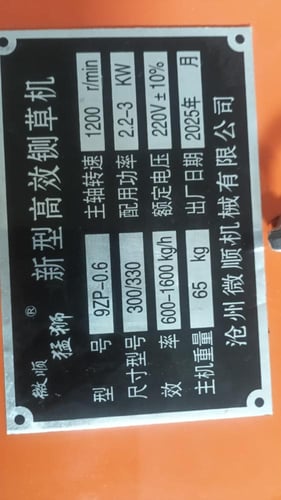 微顺 猛狮® 新型高效铡草机
型号 9ZP-0.6 主轴转速 1200 r/min
尺寸型号 300/330 配用功率 2.2-3 KW
效率 600-1600 kg/h 额定电压 220V±10%
主机重量 65 kg 出厂日期 2025年 月
沧州微顺机械有限公司